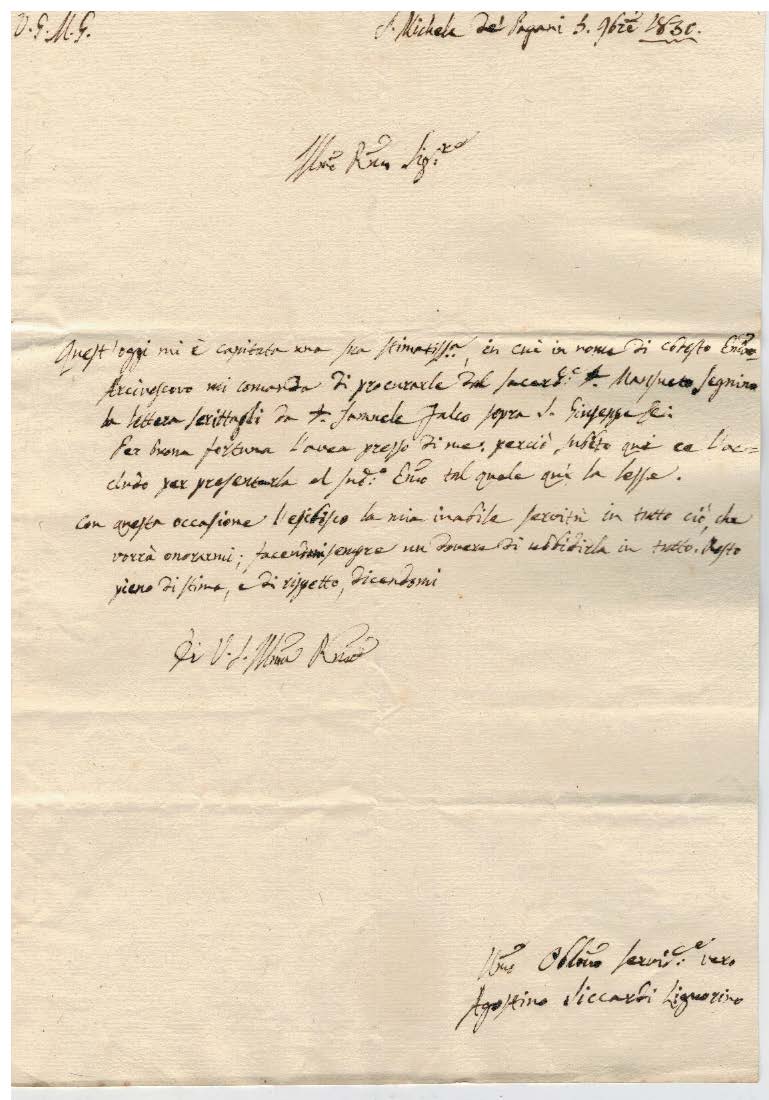 V. G. M. G.
S. Michele de' Pagani 5. 9bre 1830.
Illmo Rmo Sig.re
Quest'oggi mi è capitata una sua stimatissa, in cui in nome di cotesto Emo
Arcivescovo mi comanda di procurarle dal sacerd.e D. Mansueto Segnino
la lettera scrittagli da D. Samuele Falco sopra S. Giuseppe &c:
Per buona fortuna l'avea presso di me. perciò subito qui ce l'ac=
cludo per presentarla al sud.o Emo tal quale qui la lesse.
Con questa occasione l'esibisco la mia inabile servitù in tutto ciò, che
vorrà onorarmi; facendomi sempre un dovere di ubbidirla in tutto. Resto
pieno di stima, e di rispetto, dicendomi
Di V. S. Illma Rma
Umo Oblmo Servi.e vero
Agostino Siccardi Liguorino